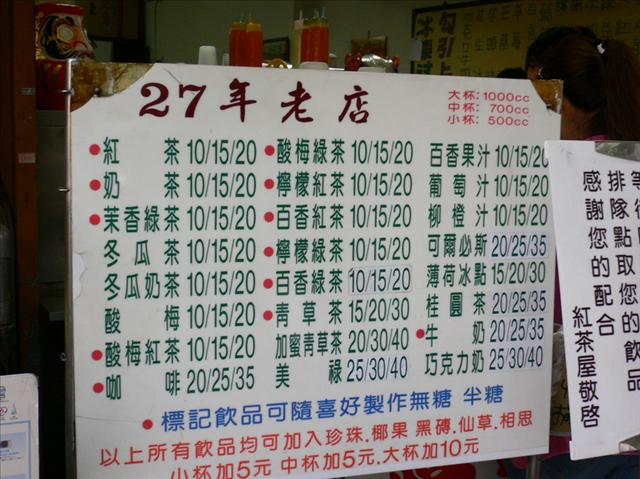 27年老店
大杯:1000cc
中杯:700cc
小杯:500cc
●紅茶 10/15/20
●奶茶 10/15/20
●茉香綠茶 10/15/20
冬瓜茶 10/15/20
冬瓜奶茶 10/15/20
酸梅 10/15/20
●酸梅紅茶 10/15/20
●咖啡 20/25/35
●酸梅綠茶 10/15/20
●檸檬紅茶 10/15/20
●百香紅茶 10/15/20
●檸檬綠茶 10/15/20
●百香綠茶 10/15/20
●青草茶 15/20/30
加蜜青草茶 20/30/40
美祿 25/30/40
百香果汁 10/15/20
葡萄汁 10/15/20
柳橙汁 10/15/20
可爾必斯 20/25/35
薄荷冰點 15/20/30
桂圓茶 20/25/35
●牛奶 20/25/35
巧克力奶 25/30/40
●標記飲品可隨喜好製作無糖 半糖
以上所有飲品均可加入珍珠.椰果 黑磚.仙草.相思
小杯加5元 中杯加5元.大杯加10元
排隊點取您的飲品
感謝您的配合
紅茶屋敬啓